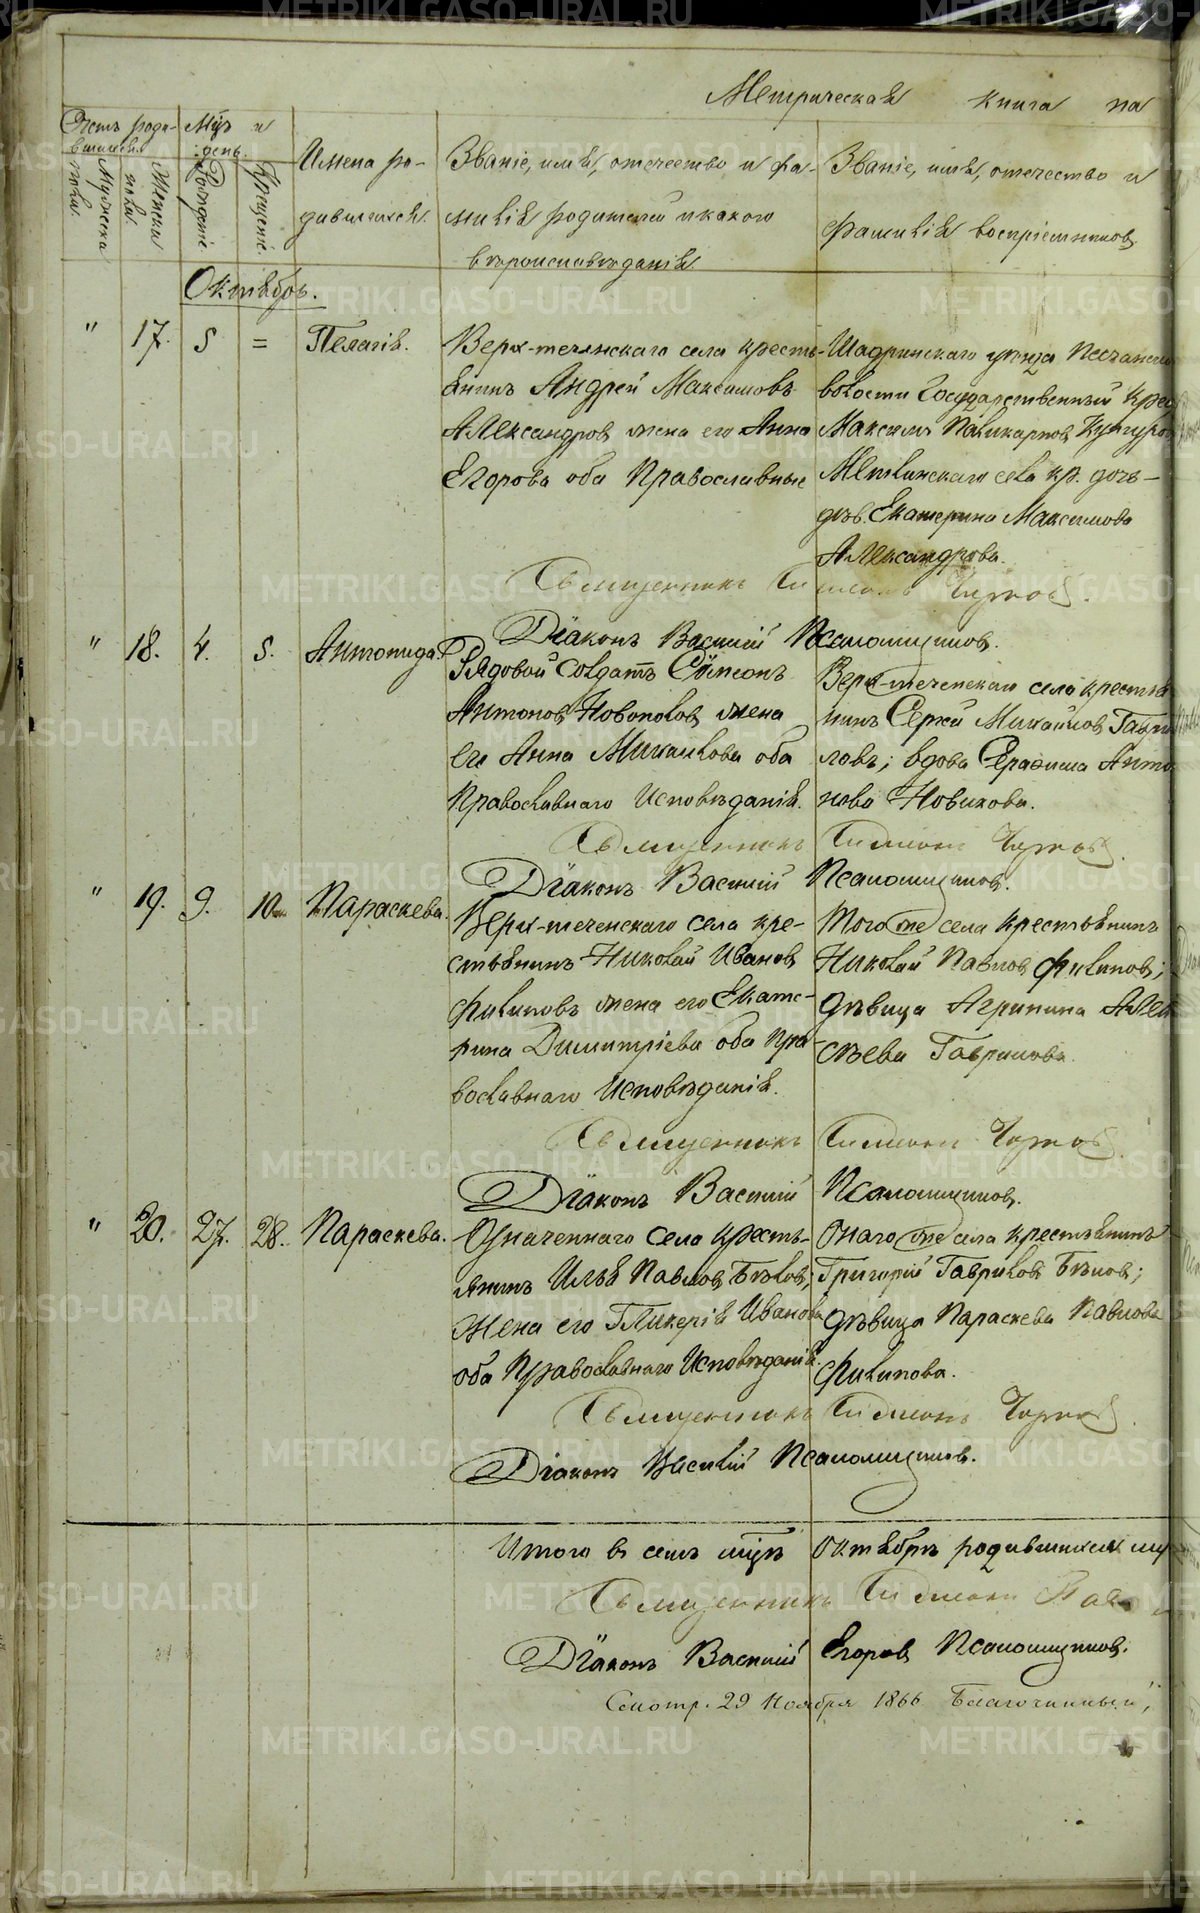 Метрическая книга на
Счетъ роди-
вшихся.
Мужеска
пола.
Женска
пола.
Мѣз и
день.
Рожденіе.
Крещеніе.
Имена ро-
дившихся.
Званіе, имя, отечество и фа-
милія родителей и какого
вѣроисповѣданія.
Званіе, имя, отечество и
фамилія воспріемниковъ.
Октябрь.
" 17. 5 = Пелагія.
Верх-теченскаго села кресть-
янинъ Андрей Максимовъ
Александровъ жена его Анна
Егорова оба Православные
Шадринскаго уѣзда Песчанской
волости Государственный Крес
Максимъ Поликарповъ Кунгуров
Метлинскаго села кр. дочь-
дѣв. Екатерина Максимова
Александрова.
Священникъ
Діаконъ Василій Псаломщиковъ.
" 18. 4. 5. Антонида.
Рядовой Солдатъ Сѵмеонъ
Антоновъ Новополовъ жена
его Анна Михайлова оба
Православнаго Исповѣданія.
Верх-теченскаго села крестья
нинъ Сергей Михайловъ Гаври
ловъ; вдова Серафима Анто
нова Новикова.
Священникъ
Діаконъ Василій Псаломщиковъ.
" 19. 9. 10. Параскева.
Верх-теченскаго села кре-
стьянинъ Николай Ивановъ
Филиповъ жена его Екате-
рина Димитріева оба Пра-
вославнаго Исповѣданія.
Того же села крестьянинъ
Николай Павловъ Филиповъ;
дѣвица Агрипина Алек
сѣева Гаврилова.
Священникъ
Діаконъ Василій Псаломщиковъ.
" 20. 27. 28. Параскева.
Означеннаго села кресть-
янинъ Илья Павловъ Бѣловъ,
жена его Гликерія Иванова
оба Православнаго Исповѣданія.
Онаго же села крестьянинъ
Григорій Гавриловъ Бѣловъ;
дѣвица Параскева Павлова
Филипова.
Священникъ
Діаконъ Василій Псаломщиковъ.
Итого въ семъ мѣзѣ Октябрѣ родившихся му
Священникъ
Діаконъ Василій Егоровъ Псаломщиковъ.
Смотр. 29 Ноября 1866 Благочинный,